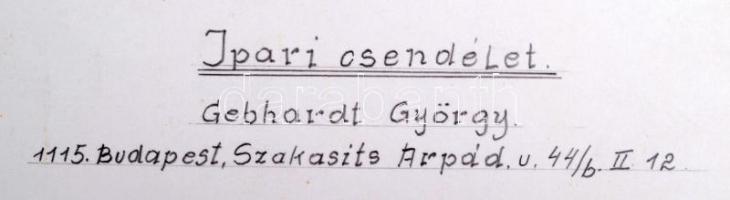 Ipari csendélet.
Gebhardt György.
1115. Budapest, Szakasits Árpád. u. 44/b. II. 12.
darabanth